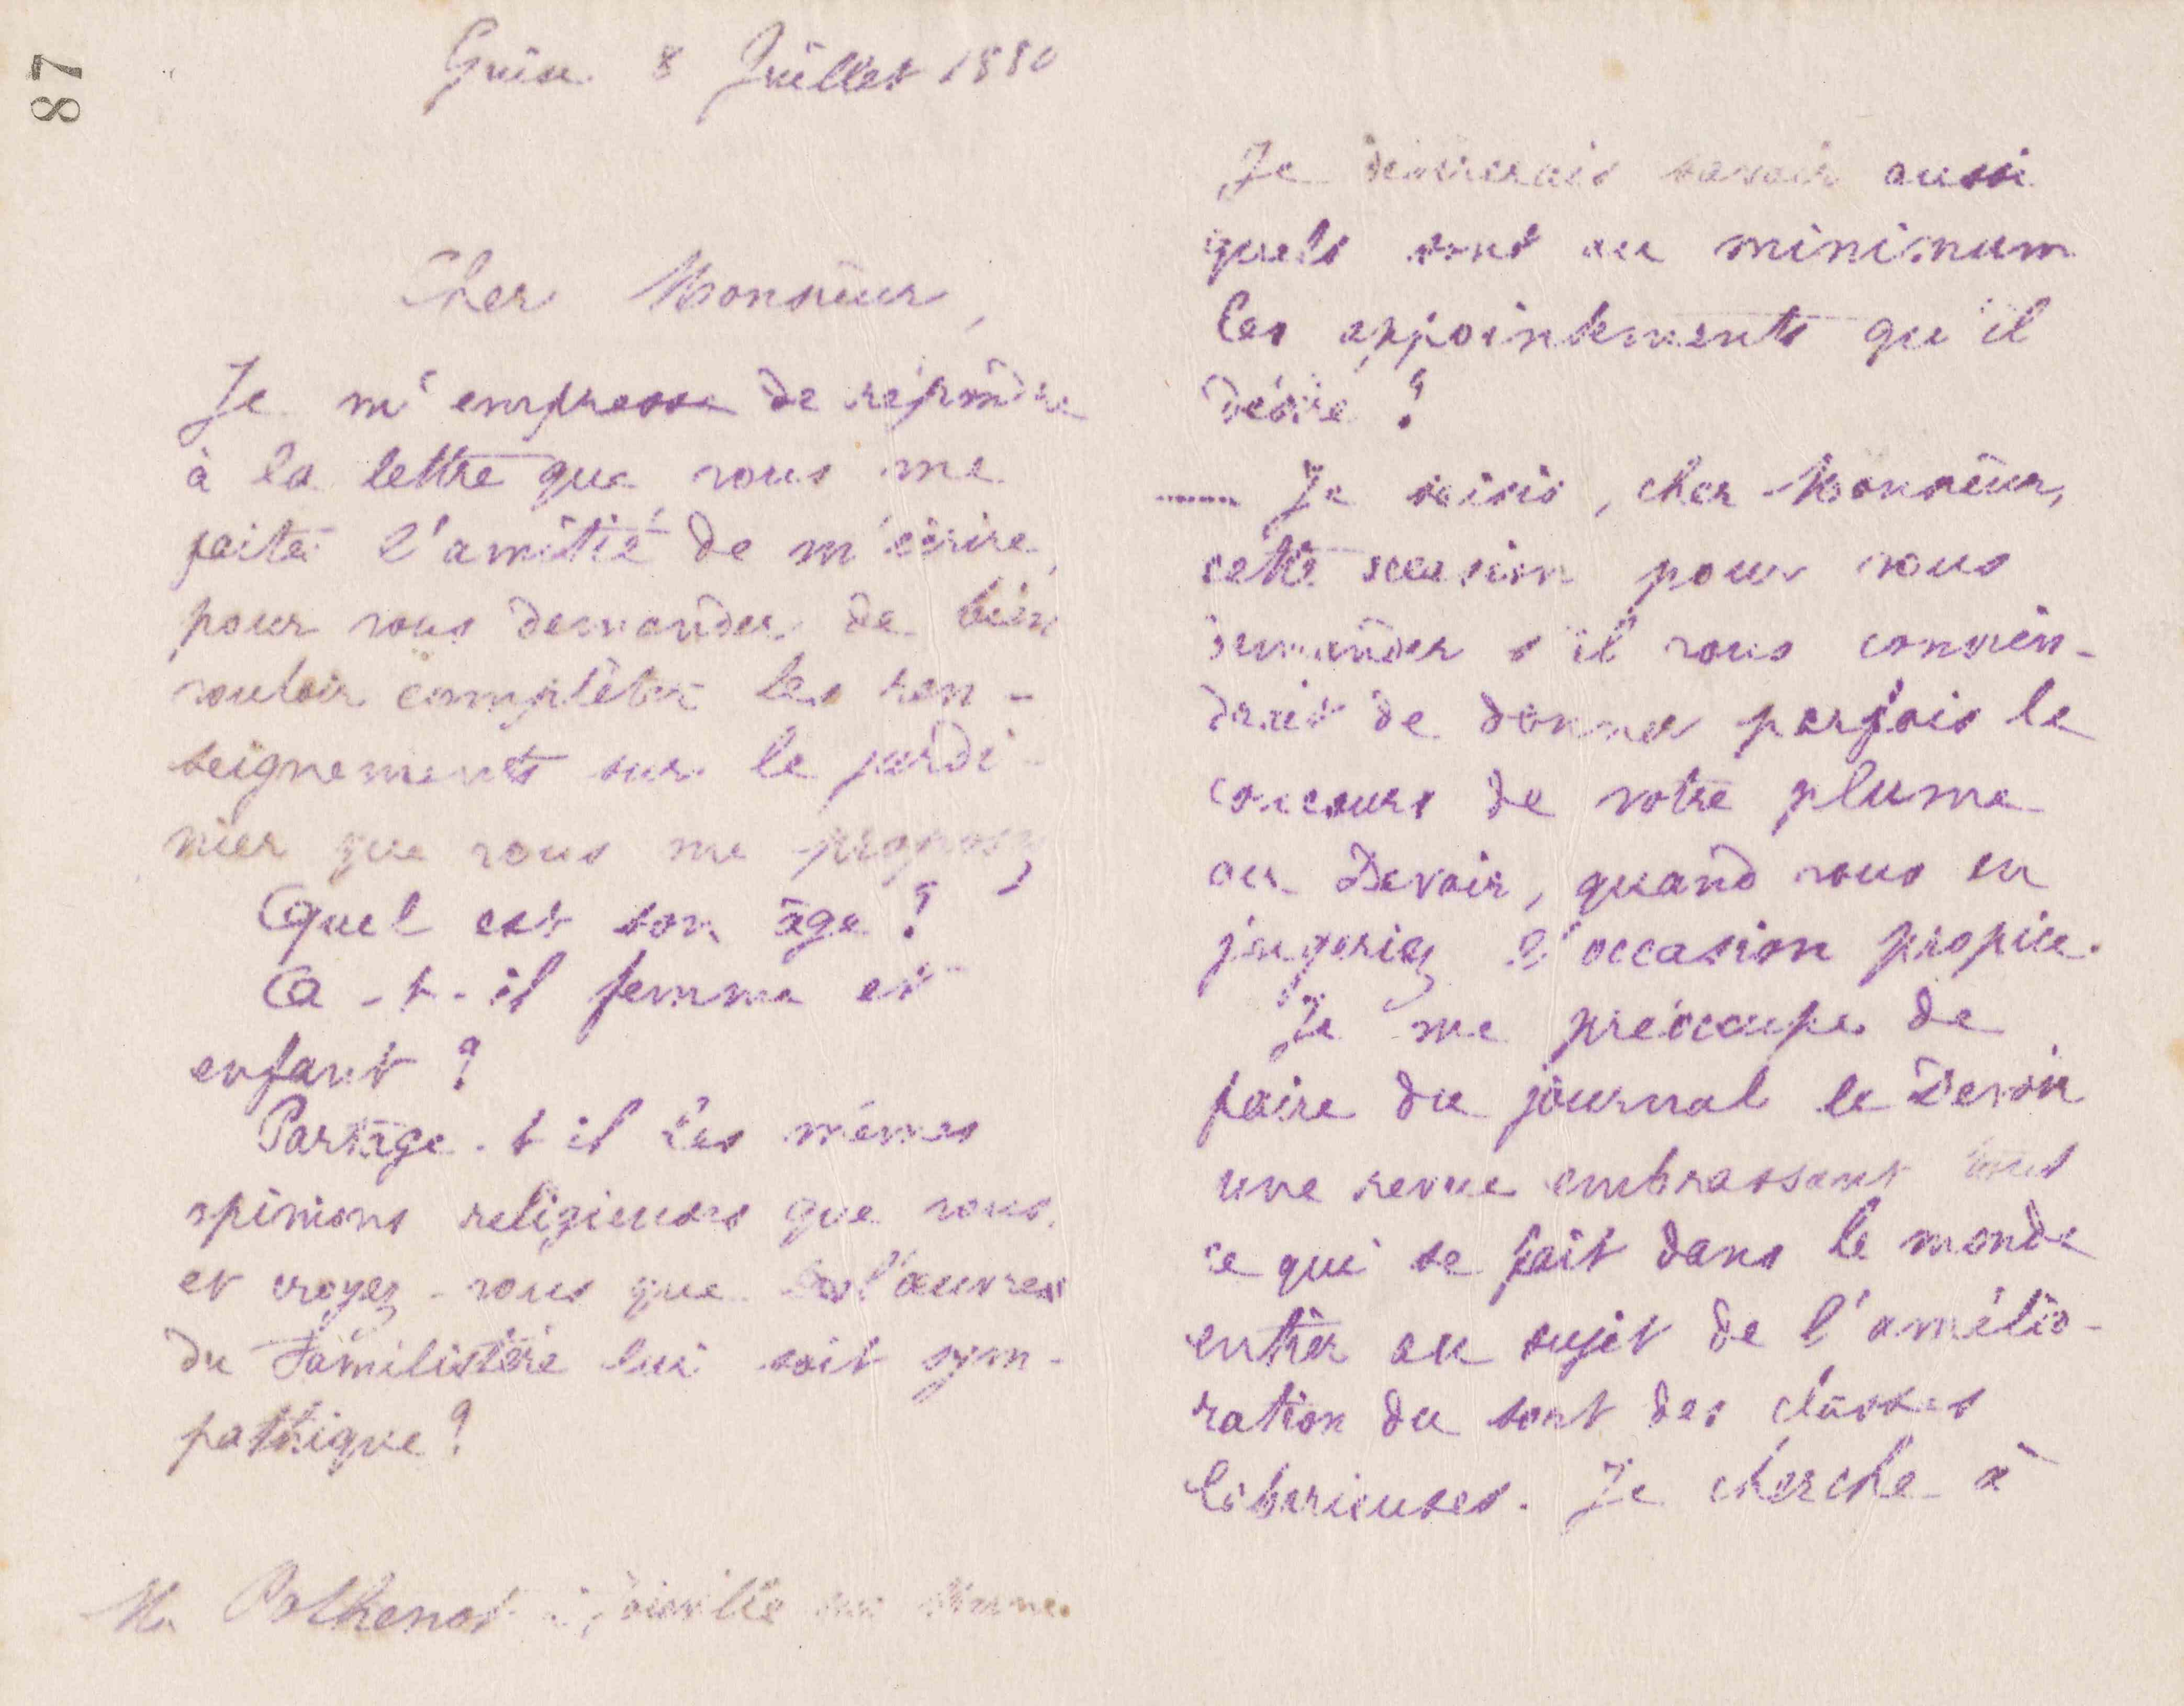 87
Guise 8 Juillet 1880
Cher Monsieur,
Je m'empresse de répondre
à la lettre que vous me
faites l'amitié de m'écrire,
pour vous demander de bien
vouloir compléter les ren-
seignements sur le jardi-
nier que vous me proposez
Quel est son âge ?
A-t-il femme et
enfant ?
Partage-t-il les mêmes
opinions religieuses que vous,
et croyez-vous que l'œuvre
du Familistère lui soit sym-
pathique ?
Mr Pothenot à Joinville sur Marne.
Je désirerais savoir aussi
quels sont au minimum
les appointements qu'il
désire ?
Je saisis, cher Monsieur,
cette occasion pour vous
demander s'il vous convien-
drait de donner parfois le
concours de votre plume
au Devoir, quand vous en
jugeriez l'occasion propice.
Je me préoccupe de
faire du journal le Devoir
une revue embrassant tout
ce qui se fait dans le monde
entier au sujet de l'amélio-
ration du sort des classes
laborieuses. Je cherche à